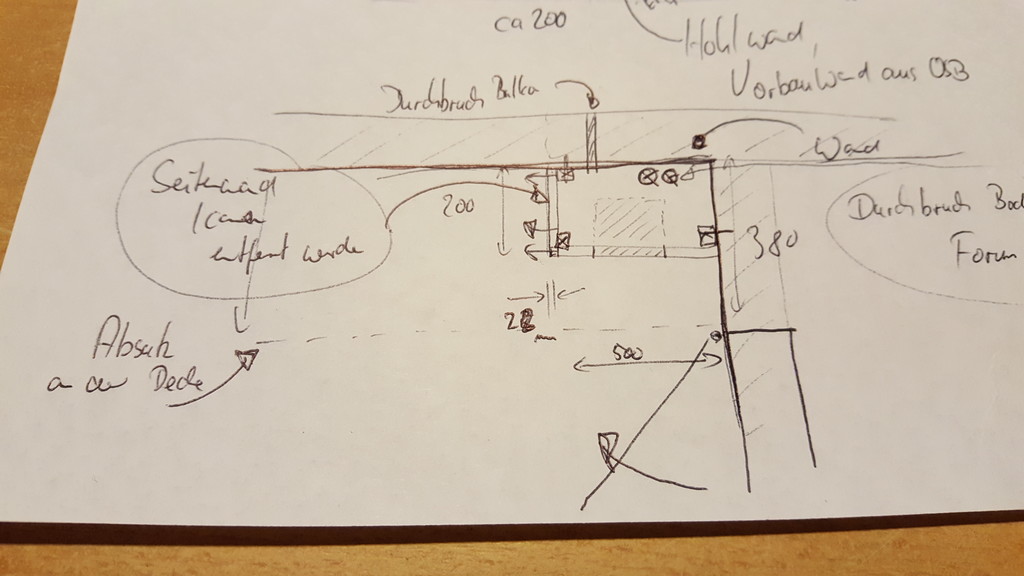 ca 200
Hohlwand,
Vorbauwand aus OSB
Durchbruch Balken
Wand
Seitenwand
kann
entfernt werden
200
380
Durchbruch
Forum
Absatz
an der Decke
500